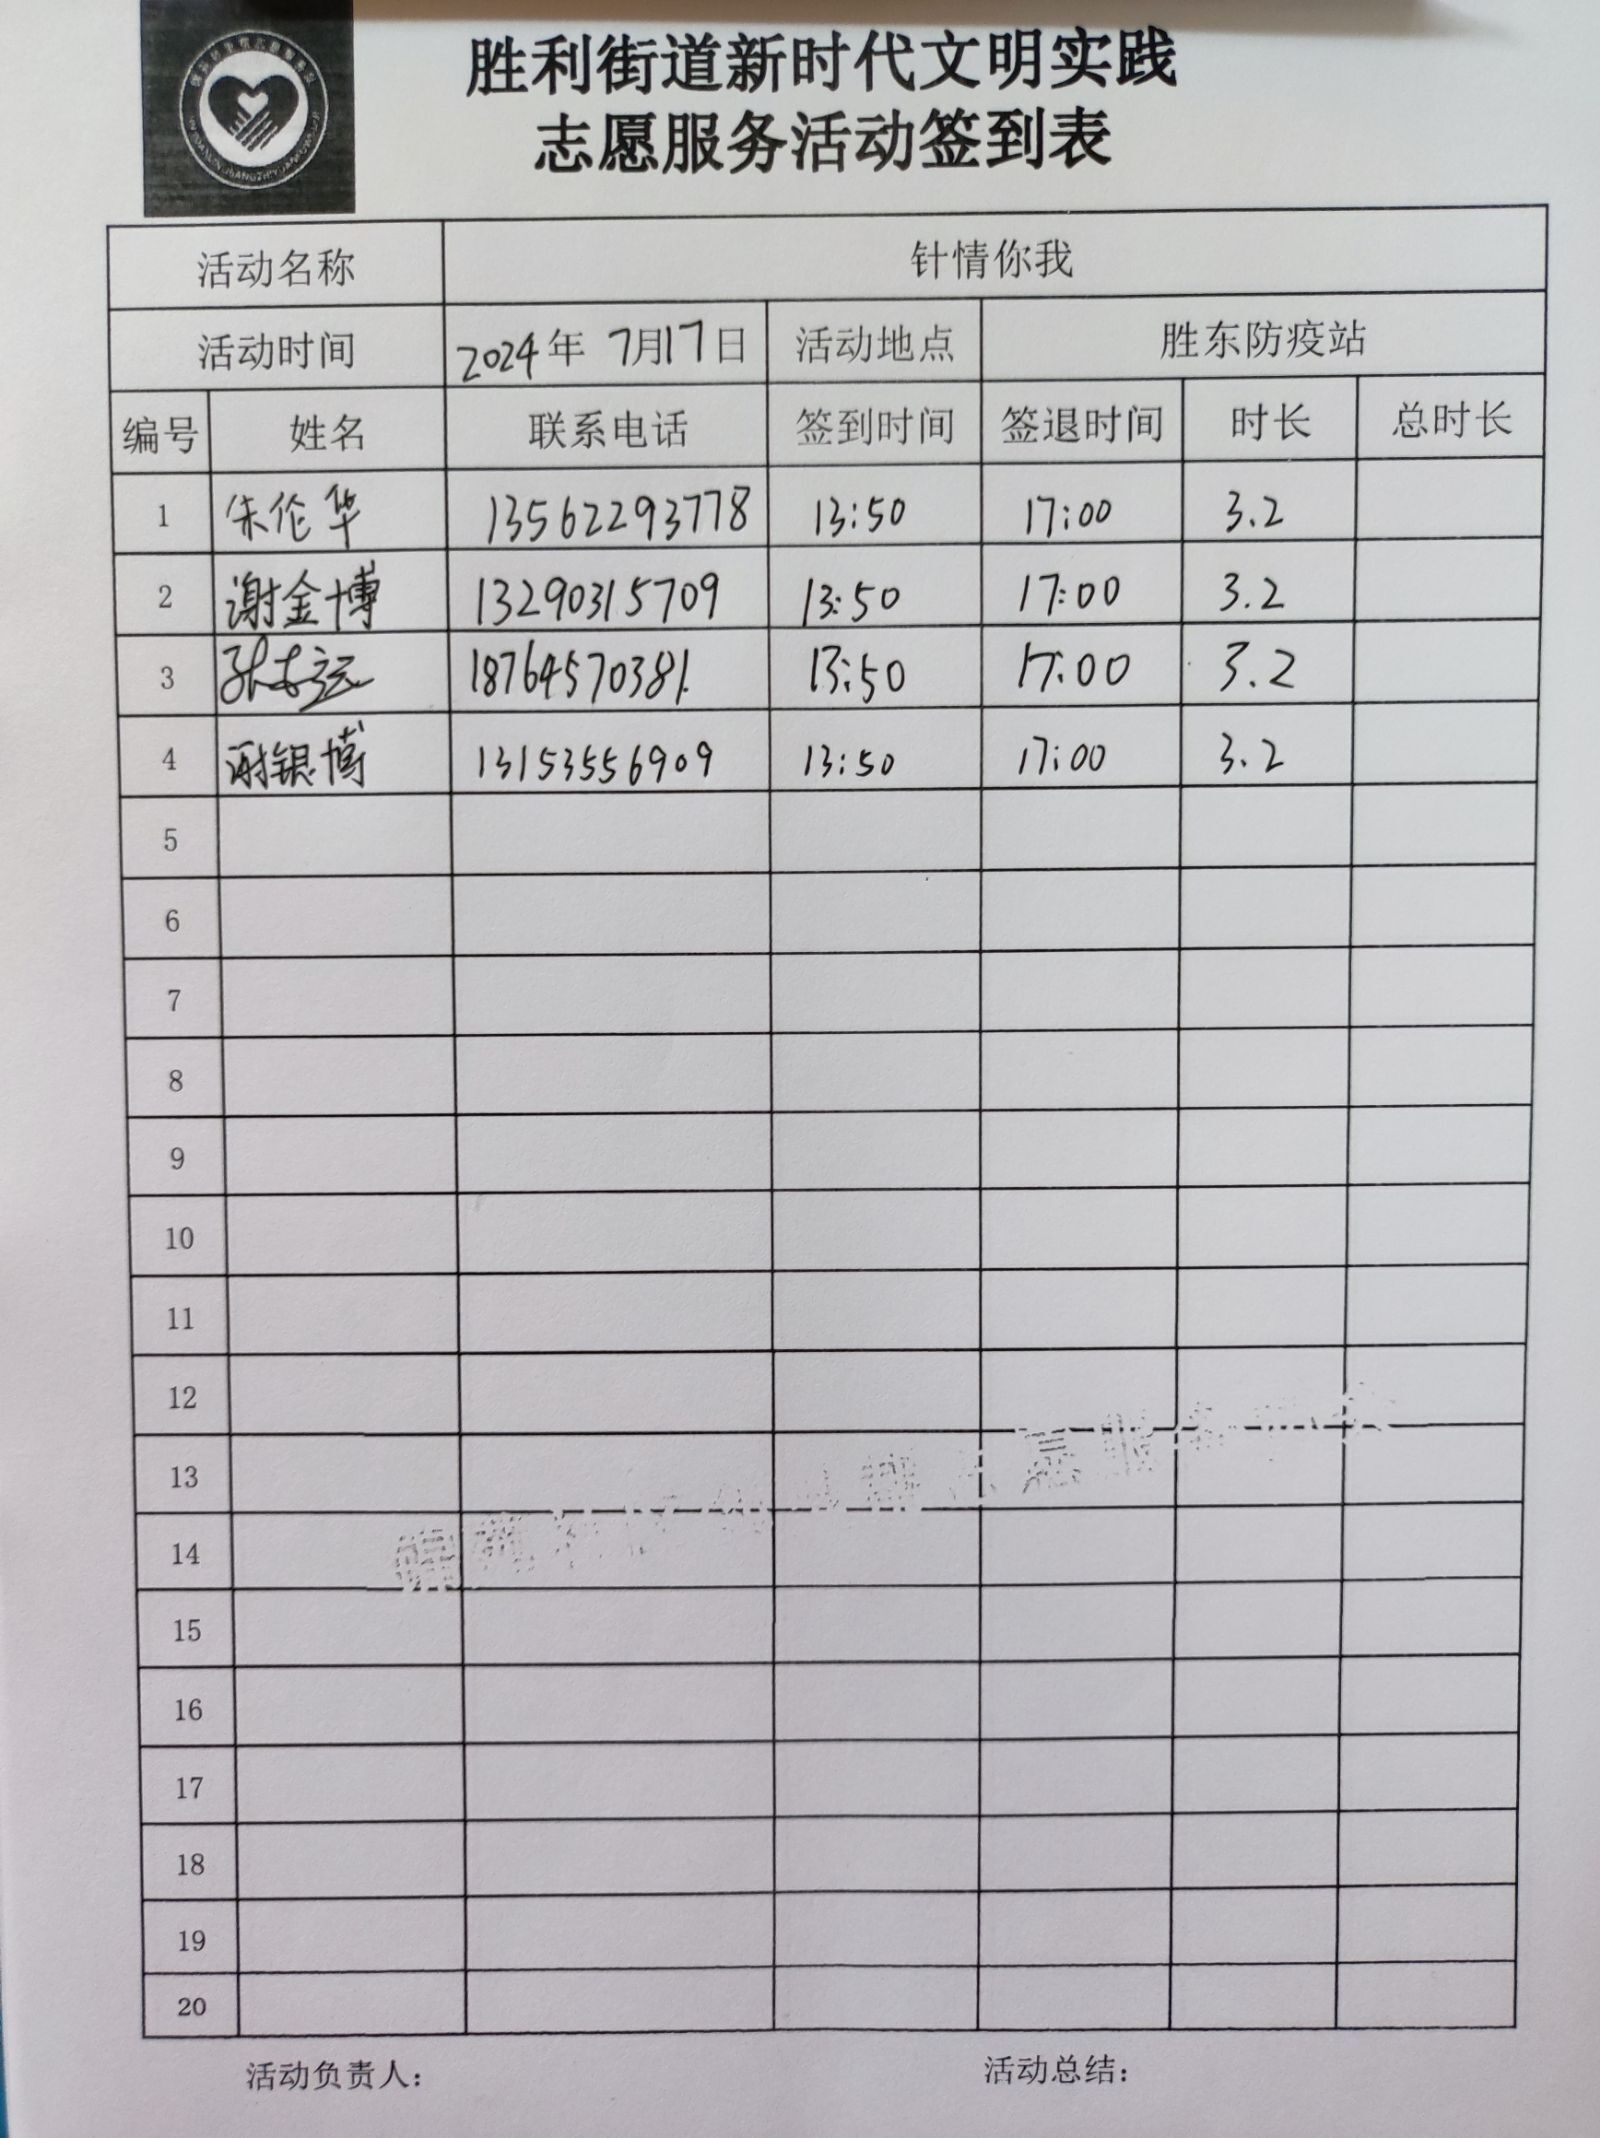 胜利街道新时代文明实践
志愿服务活动签到表
活动名称 针情你我
活动时间 2024年 7月17日 活动地点 胜东防疫站
编号 姓名 联系电话 签到时间 签退时间 时长 总时长
1 朱伦华 13562293778 13:50 17:00 3.2
2 谢金博 13290315709 13:50 17:00 3.2
3 18764570381 13:50 17:00 3.2
4 谢银博 13153556909 13:50 17:00 3.2
5
6
7
8
9
10
11
12
13
14
15
16
17
18
19
20
活动负责人: 活动总结: